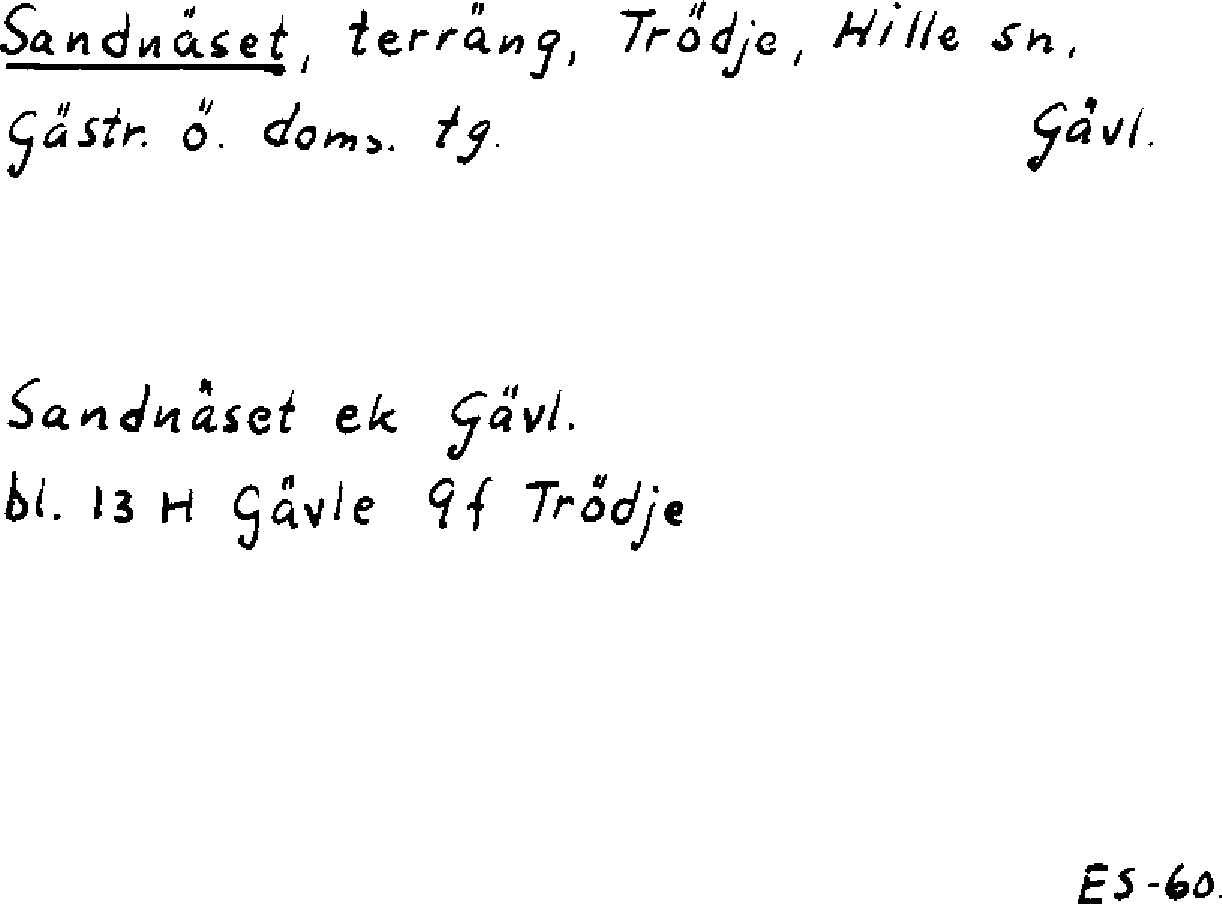 Sandnäset, terräng, Trödje, Hille sn,
Gästr. ö. doms. tg. Gävl.
Sandnäset ek Gävl.
bl. 13 H Gävle 9f Trödje
ES-60.